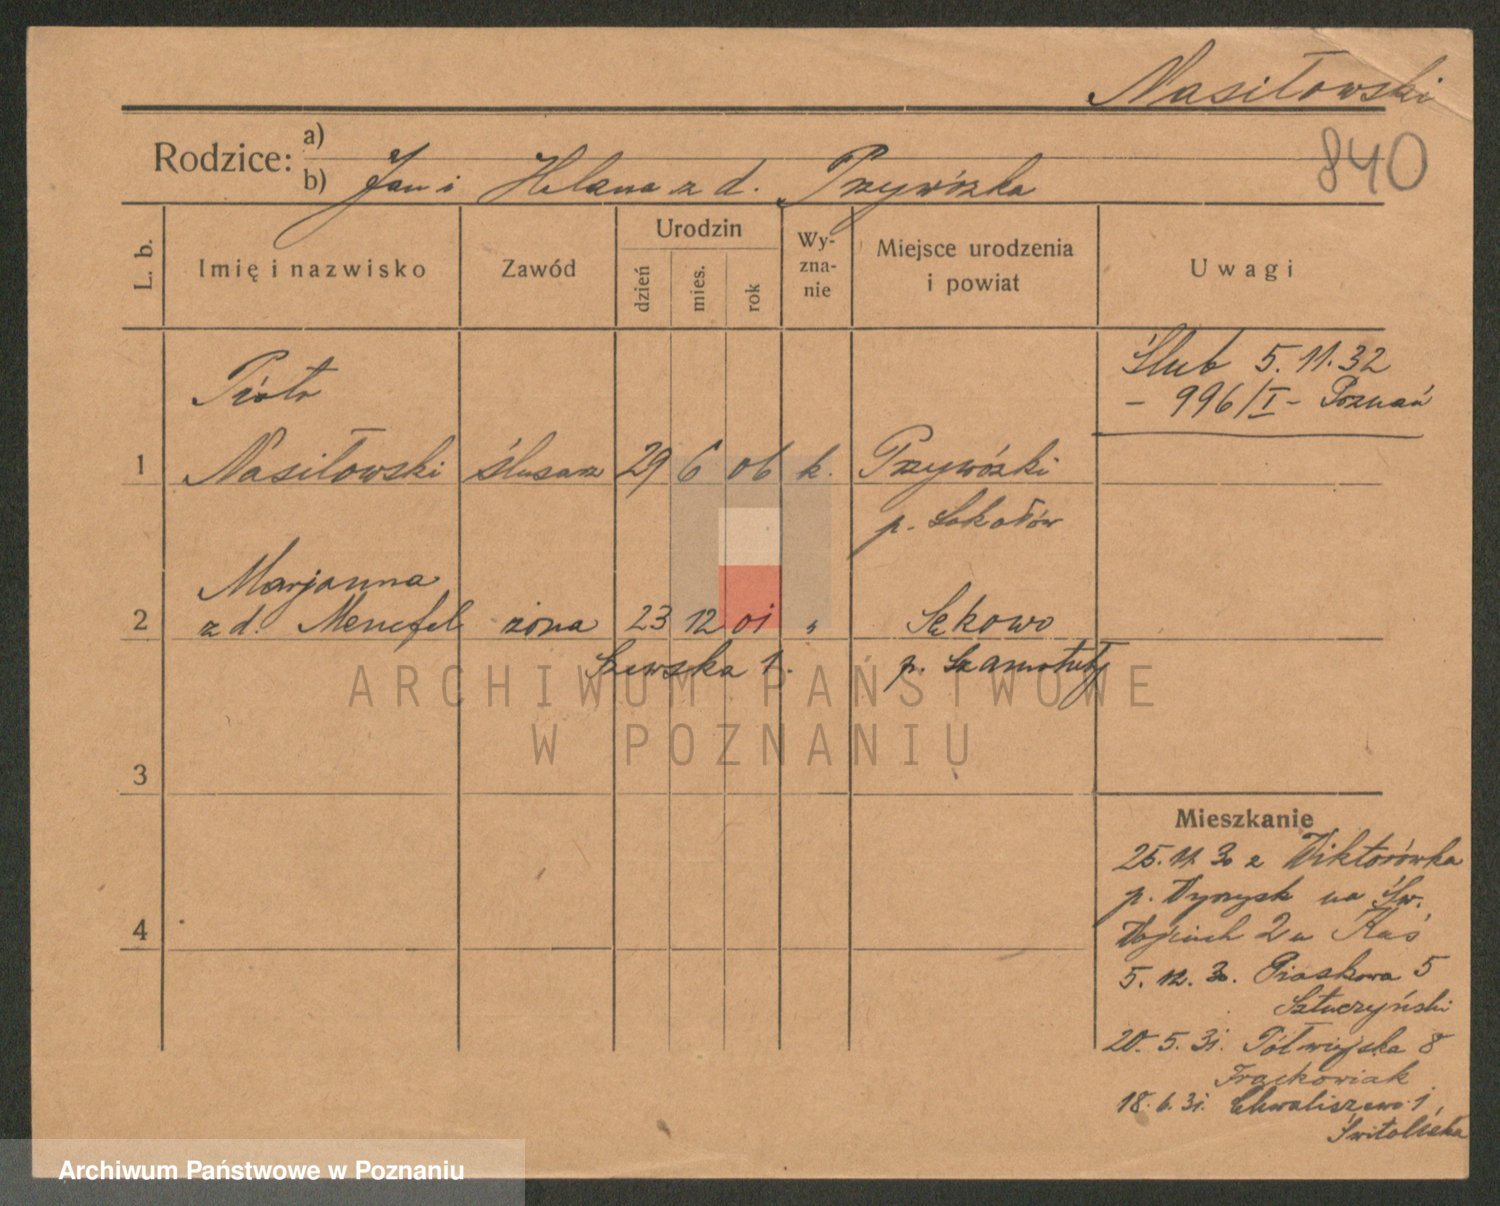 Nasiłowski
840
Rodzice: a)
b) Jan i Helena z d. Przywózka
L. b.
Imię i nazwisko
Zawód
Urodzin
dzień
mies.
rok
Wy-
zna-
nie
Miejsce urodzenia
i powiat
Uwagi
Ślub 5.11.32
- 996/I - Poznań
Piotr
1 Nasiłowski ślusarz 29 6 06 k. Przywózki
p. Sokołów
Marjanna
2 z d. Menefel żona 23 12 01 " Sękowo
Szewska 1. p. Szamotuły
ARCHIWUM PAŃSTWOWE
W POZNANIU
3
Mieszkanie
25.11.30 z Wiktorówka
p. Wyrzysk na Św.
4
Wojciech 2 u Kuś
5.12.30. Piaskowa 5
Sztuczyński
20.5.31. Półwiejska 8
Frąckowiak
18.6.31. Chwaliszewo 1
Świtalska
Archiwum Państwowe w Poznaniu